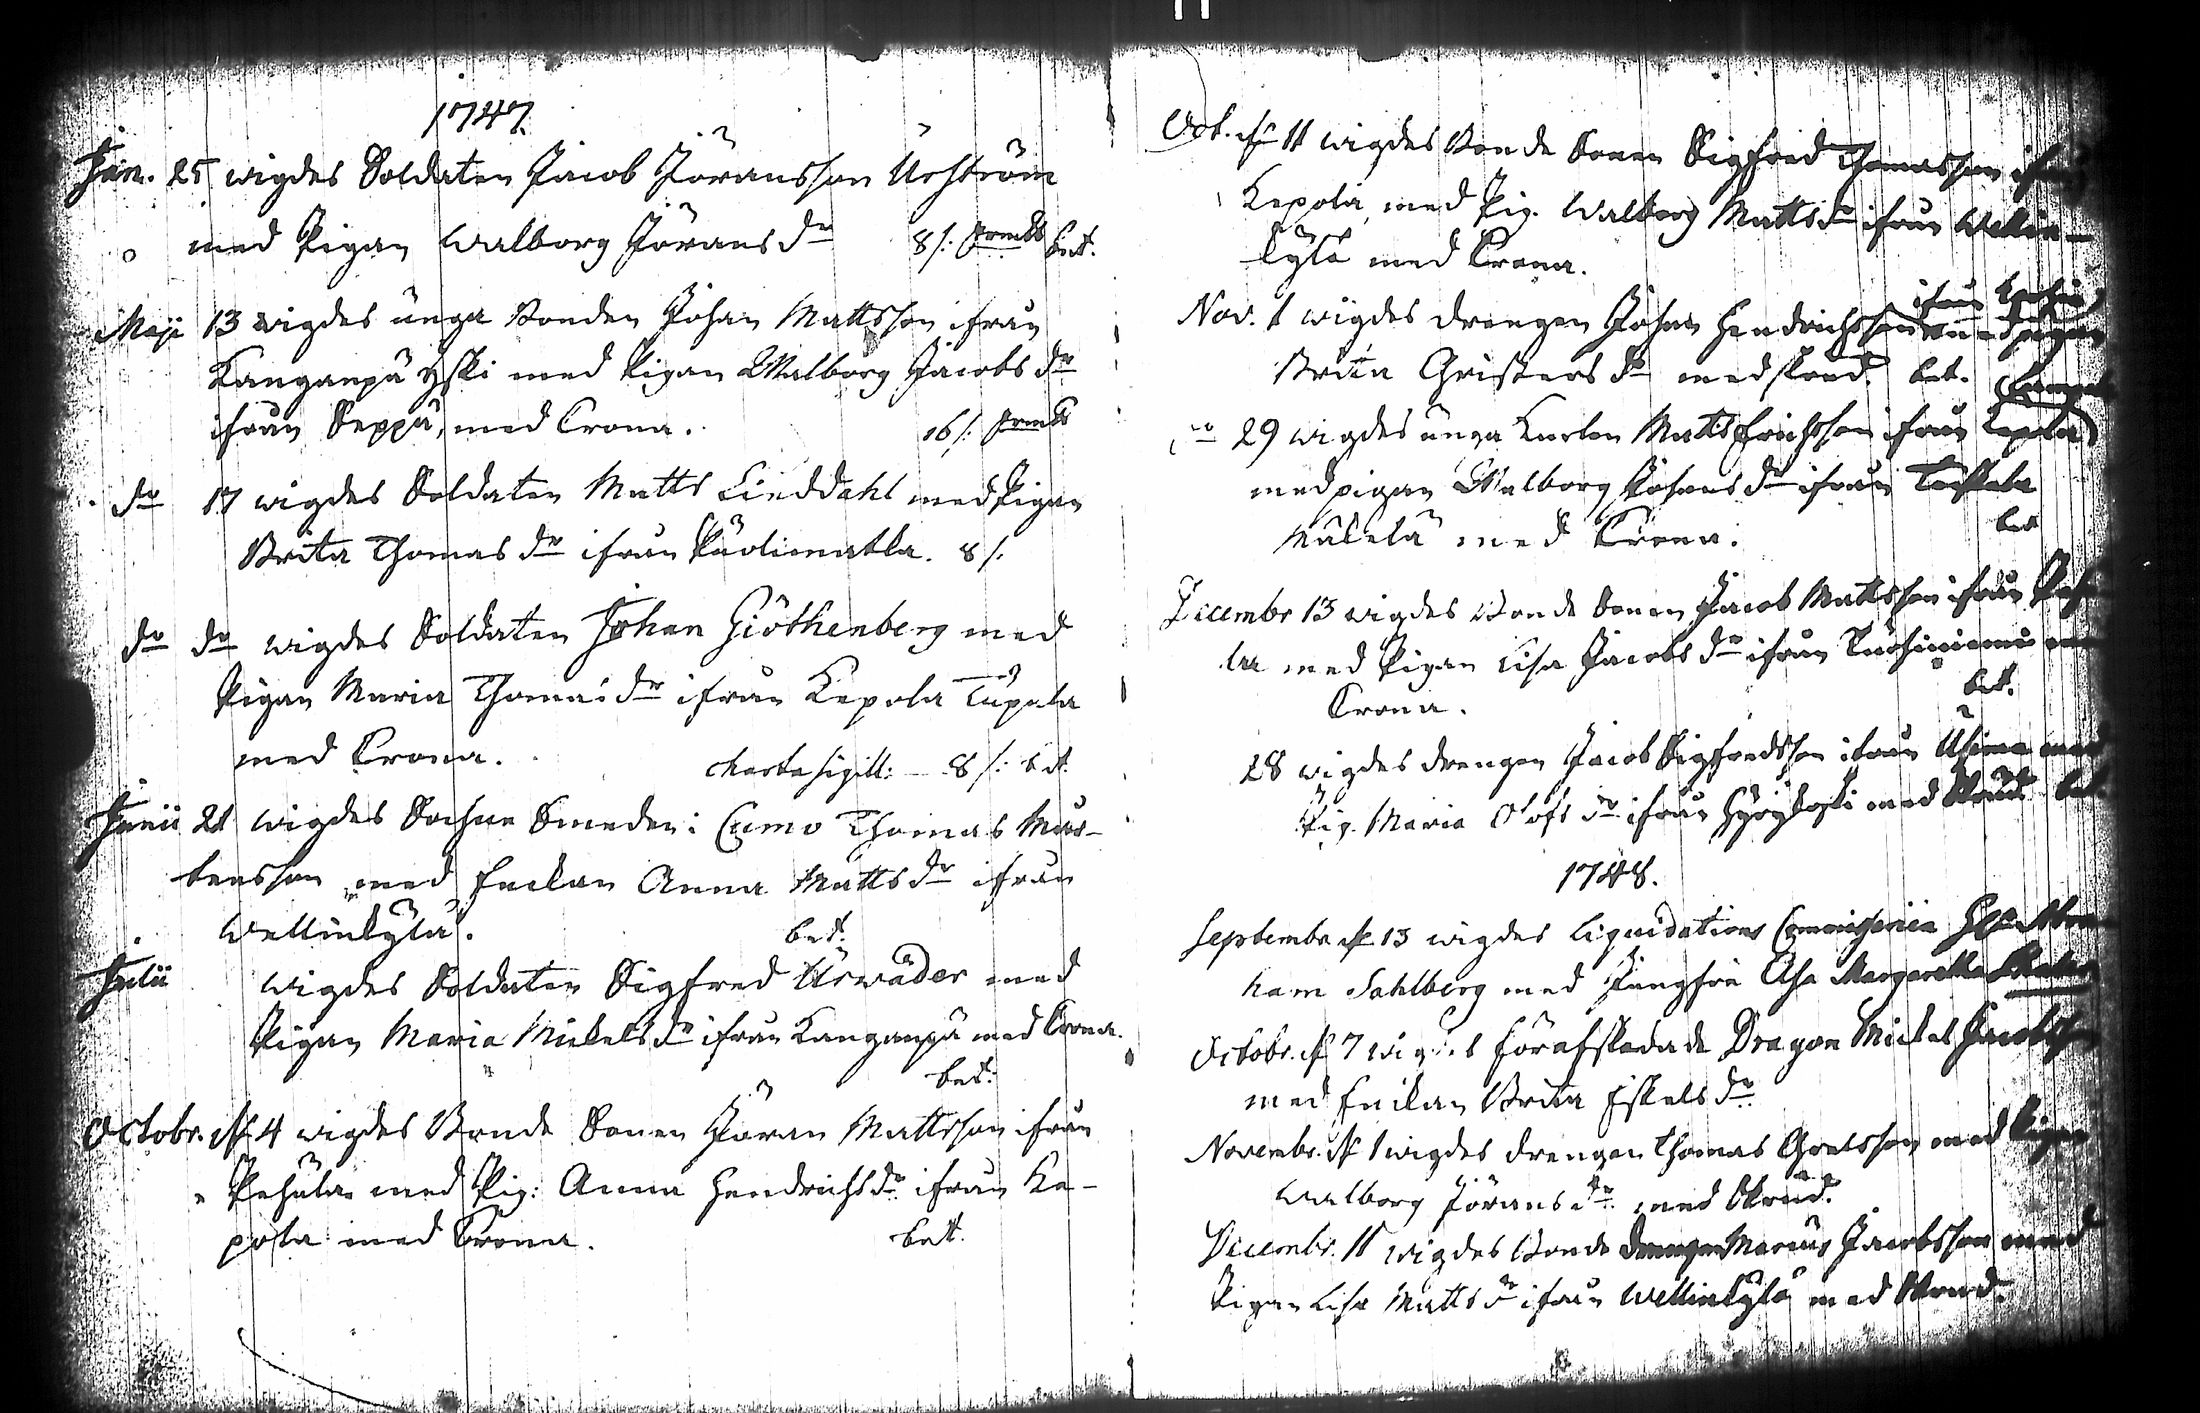 1747.
Jan. 25 wigdes Soldaten Jacob Jöransson Urström
med Pigan Walborg Jörans dr 8 /: bet.
Maji 13 wigdes unga Bonden Johan Mattsson ifrån
Kanganpä Yski med Pigan Walborg Jacobs dr
ifrån Seppä, med Crona. 16 /:
dr 17 wigdes Soldaten Matts Linddahl med Pigan
Brita Thomas dr ifrån Puolimatka. 8 /:
dr dr wigdes Soldaten Johan Giöthenberg med
Pigan Maria Thomæ dr ifrån Kepola Tupala
med Crona. charta sigill: 8 /: bet.
Junii 21 wigdes Sochne Smeden i Cumo Thomas Mår-
tensson med Enckan Anna Matts dr ifrån
Wellinkylä. bet.
Julii wigdes Soldaten Sigfred Urwäder med
Pigan Maria Mickels dr ifrån Kanganpä med Crona.
bet:
Octobr. d. 4 wigdes Bonde Sonen Jöran Mattsson ifrån
Pehula med Pig: Anna Hendrichs dr ifrån Ke-
pola med Crona. bet.
Oct. d. 11 wigdes Bonde Sonen Sigfred Thomasson ifrån
Kepola, med Pig. Walborg Matts dr ifrån Wellin-
kylä med Crona.
ifrån
Nov. 1 wigdes drengen Johan Hendrichsson med pigan
Brita Christers dr med skrud. bet.
dr 29 wigdes unga Karlen Matts Erichsson ifrån Kepola
med pigan Walborg Johans dr ifrån
Mäkelä med Crona. bet
Decembr 13 wigdes Bonde Sonen Jacob Mattsson ifrån
la med Pigan Lisa Jacobs dr ifrån
Crona. bet.
28 wigdes drengen Jacob Sigfredsson ifrån Usima med
Pig. Maria Olofs dr ifrån med Skrud bet.
1748.
Septembr d. 13 wigdes Liquidations Commissarien Abra-
ham Sahlberg med Jungfru Asa Margaretha
Octobr. d. 7 wigdes förafskedade Dragon Mickel Jacobsson
med Enckan Brita Eskels dr
Novembr. d. 1 wigdes drengen Thomas Grelsson med Pigan
Walborg Jörans dr med Skrud.
Decembr. 11 wigdes Bonde drengen Marcus Jacobsson med
Pigan Lisa Matts dr ifrån Wellinkylä med Skrud.